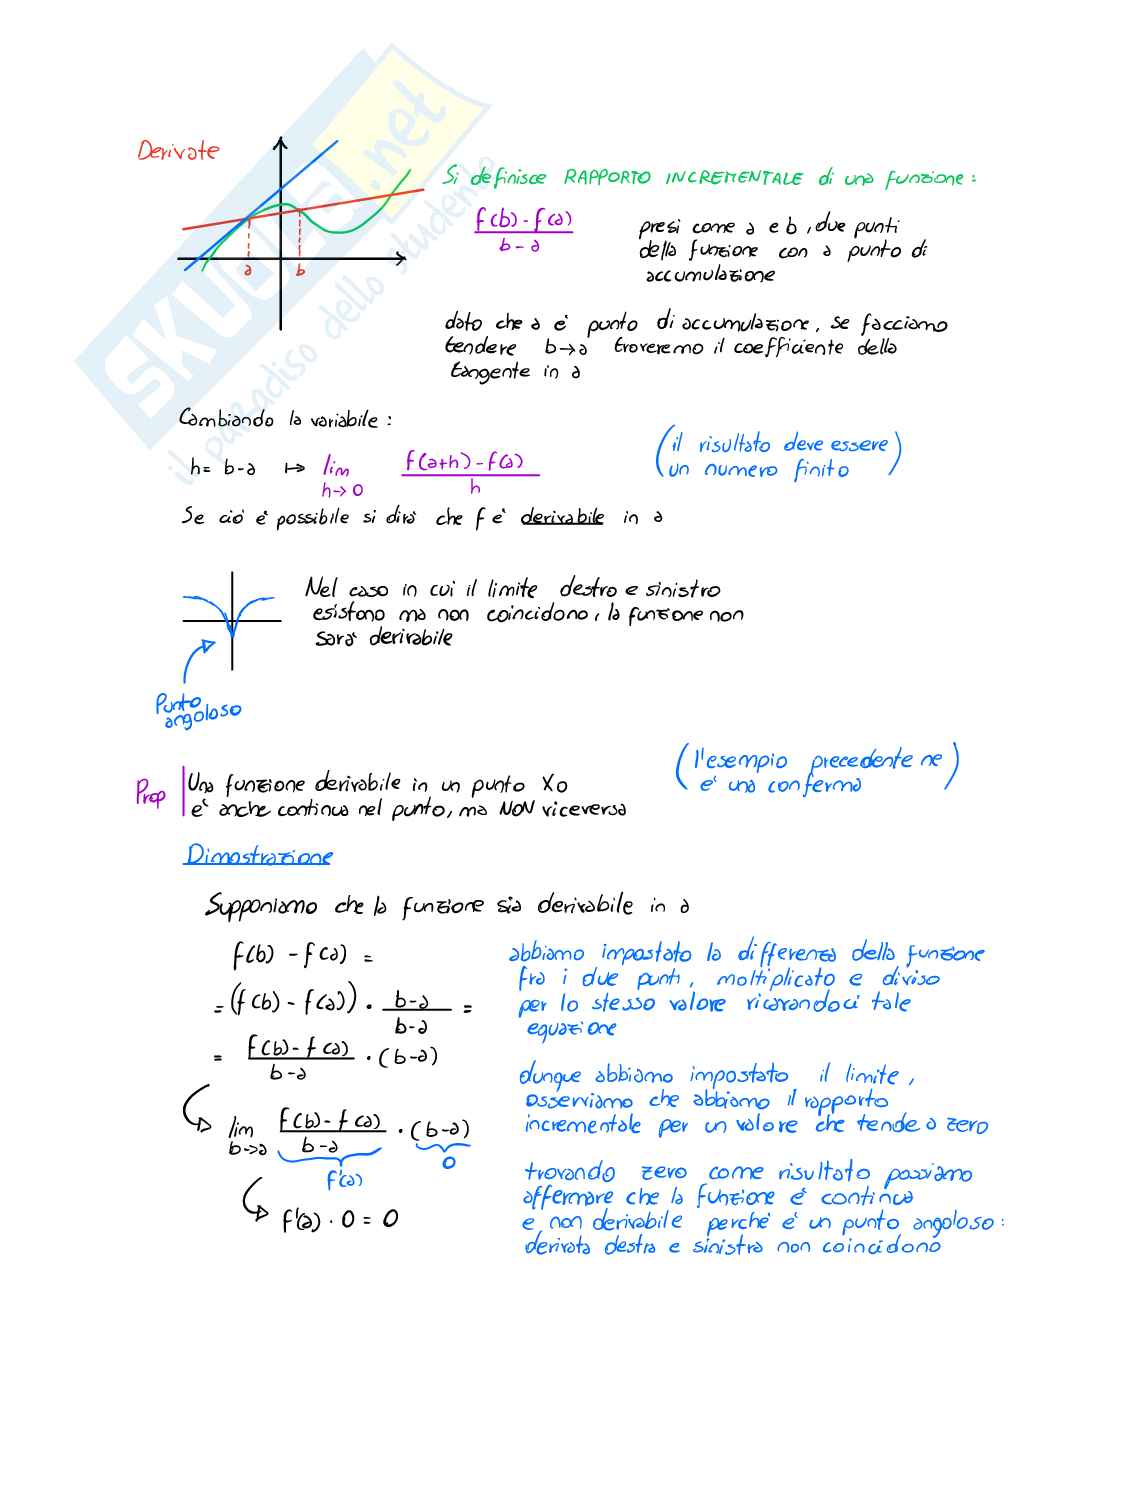 SKUOLA.net
il paradiso dello studente
Derivate
a b
Si definisce RAPPORTO INCREMENTALE di una funzione:
f(b) - f(a)
b - a
presi come a e b, due punti
della funzione con a punto di
accumulazione
dato che a è punto di accumulazione, se facciamo
tendere b→a troveremo il coefficiente della
tangente in a
Cambiando la variabile:
h = b-a ↦ lim f(a+h) - f(a)
h→0 h
(il risultato deve essere
un numero finito)
Se ciò è possibile si dirà che f è derivabile in a
Nel caso in cui il limite destro e sinistro
esistono ma non coincidono, la funzione non
sarà derivabile
Punto
angoloso
Prop
Una funzione derivabile in un punto x0
è anche continua nel punto, ma NON viceversa
(l'esempio precedente ne
è una conferma)
Dimostrazione
Supponiamo che la funzione sia derivabile in a
f(b) - f(a) =
= (f(b) - f(a)) · b-a =
b-a
= f(b) - f(a) · (b-a)
b-a
lim f(b) - f(a) · (b-a)
b→a b-a
f'(a) 0
f'(a) · 0 = 0
abbiamo impostato la differenza della funzione
fra i due punti, moltiplicato e diviso
per lo stesso valore ricavandoci tale
equazione
dunque abbiamo impostato il limite,
osserviamo che abbiamo il rapporto
incrementale per un valore che tende a zero
trovando zero come risultato possiamo
affermare che la funzione è continua
e non derivabile perché è un punto angoloso:
derivata destra e sinistra non coincidono